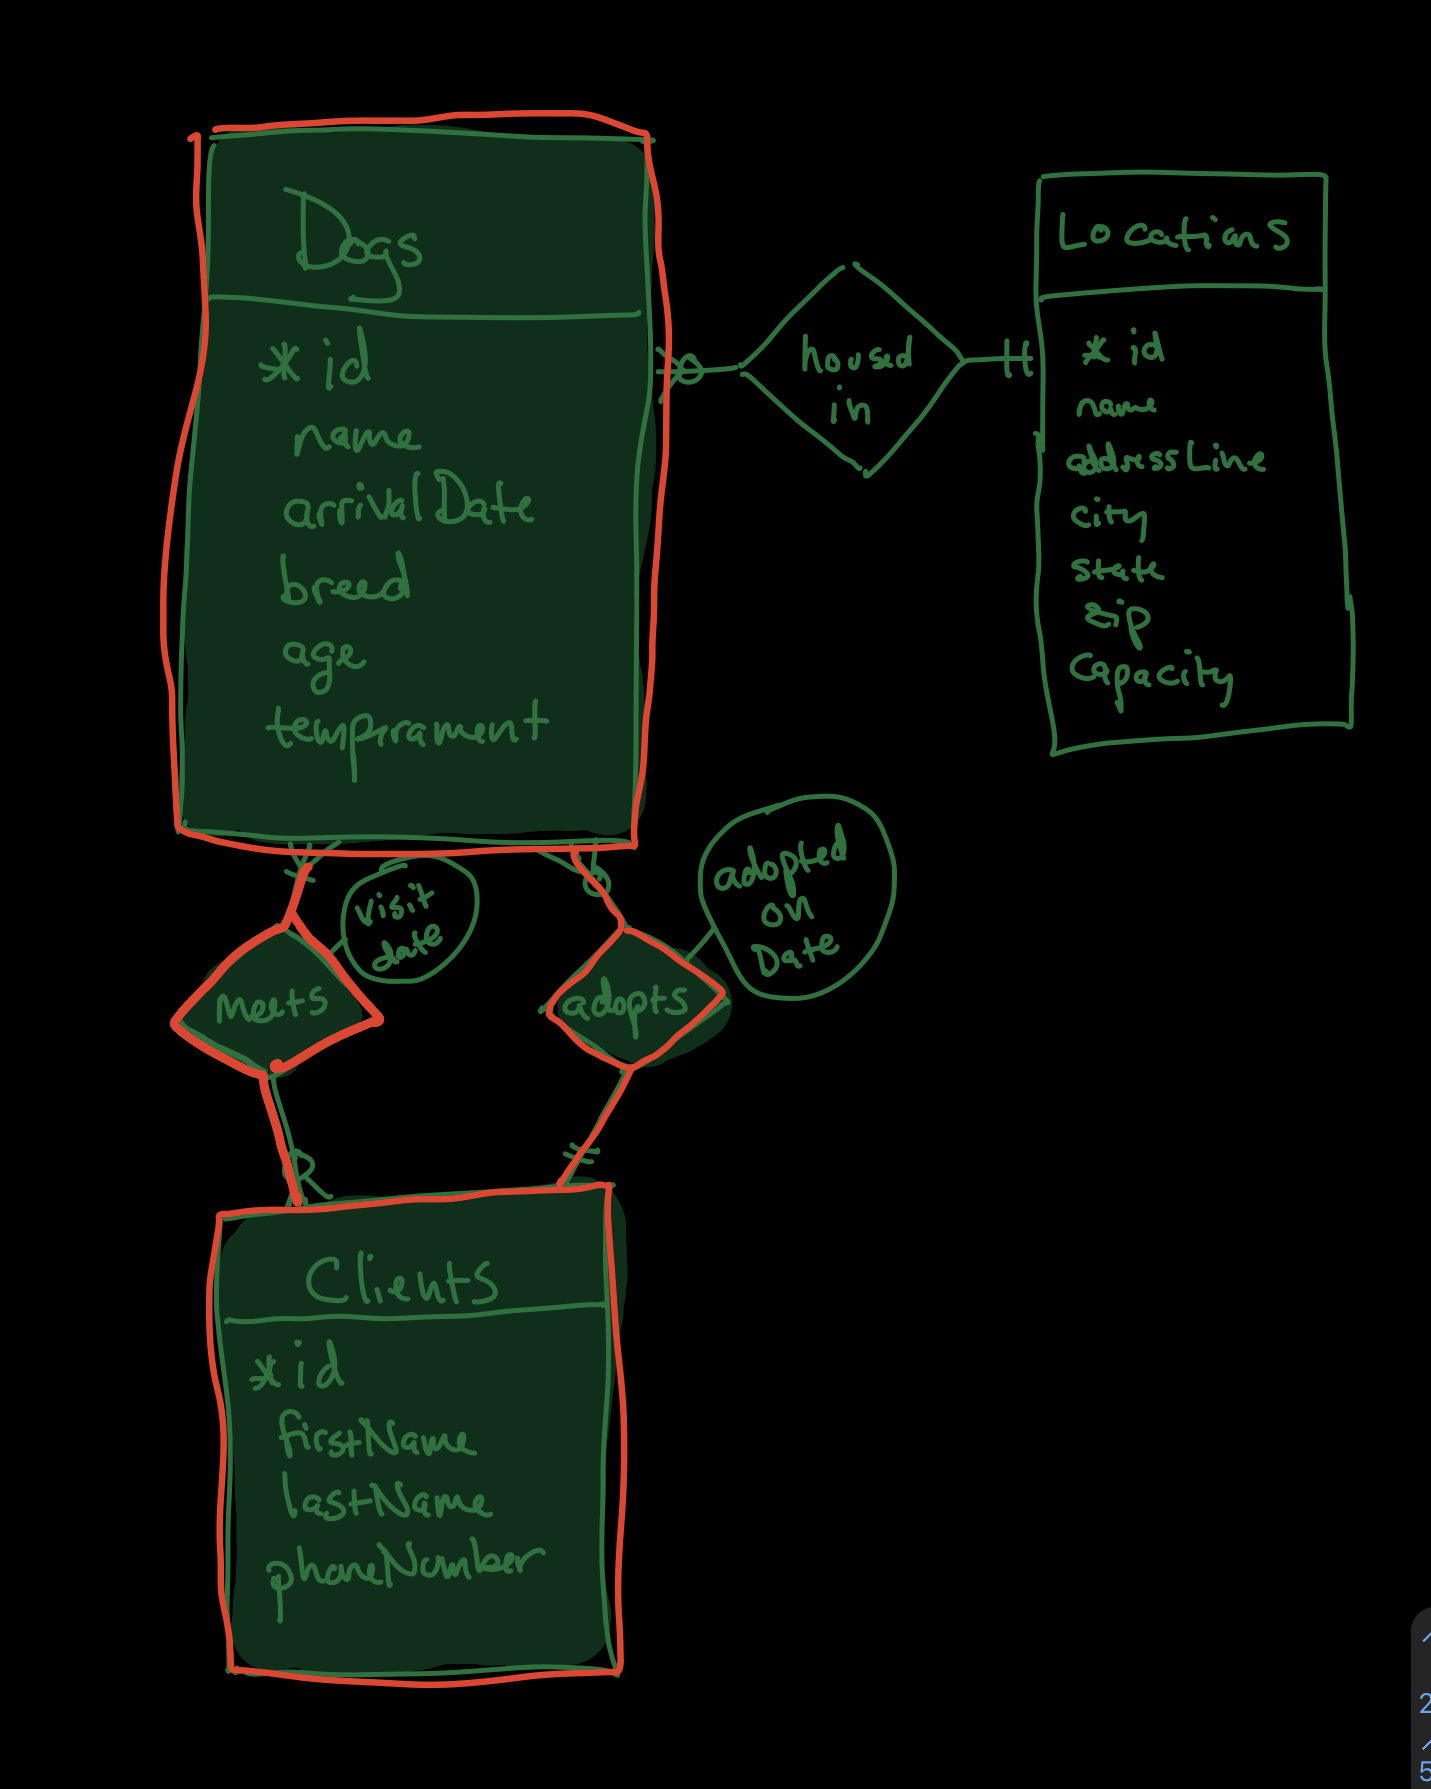 Dogs
* id
name
arrivalDate
breed
age
temprament
housed
in
Locations
* id
name
addressLine
city
state
zip
Capacity
visit
date
adopted
on
Date
meets
adopts
Clients
* id
firstName
lastName
phoneNumber
2
5